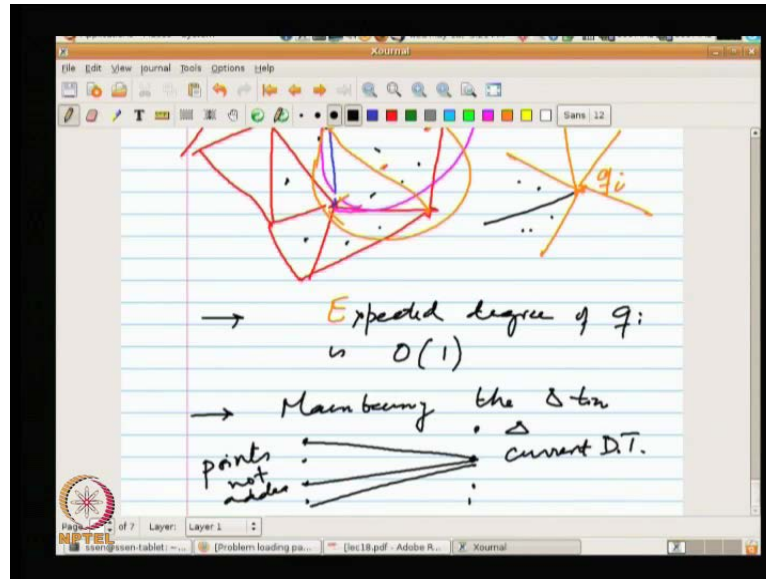 Xournal
File Edit View Journal Tools Options Help
Sans 12
qi
→ Expected degree of qi
is O(1)
→ the Δtn
points not added
Δ
current D.T.
Page of 7 Layer: Layer 1
ssen@ssen-tablet: ~... [Problem loading pa... [lec18.pdf - Adobe R... Xournal
NPTEL